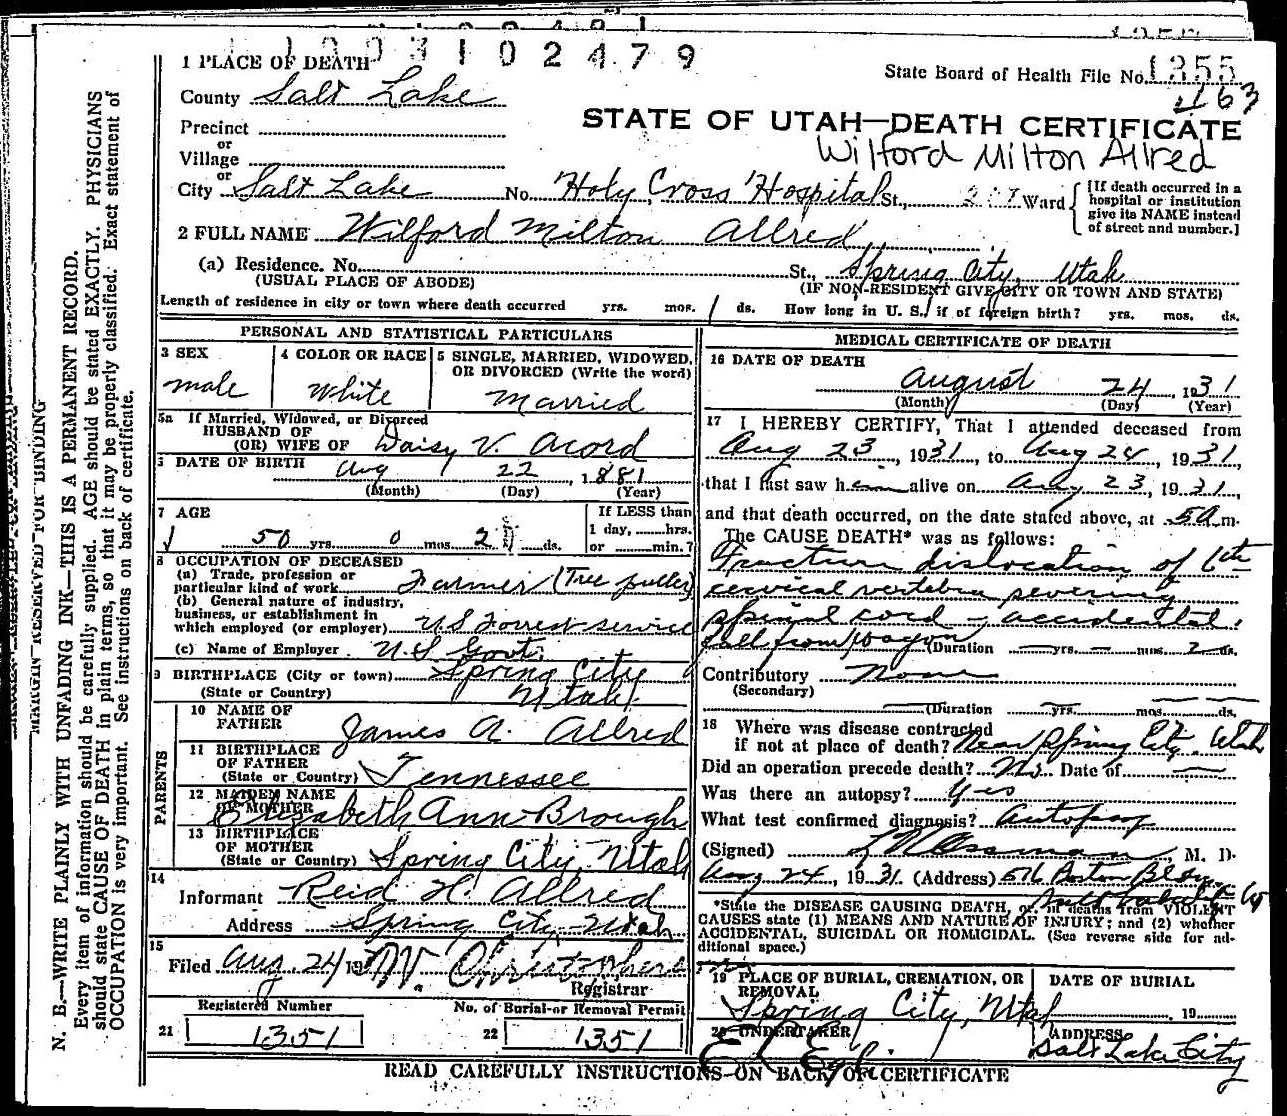 1003102479
1 PLACE OF DEATH
State Board of Health File No. 1355
463
County Salt Lake
STATE OF UTAH—DEATH CERTIFICATE
Precinct
or
Wilford Milton Allred
Village
or
City Salt Lake No. Holy Cross Hospital St., Ward
[If death occurred in a
hospital or institution
give its NAME instead
of street and number.]
2 FULL NAME Wilford Milton Allred
(a) Residence. No. St., Spring City, Utah
(USUAL PLACE OF ABODE) (IF NON-RESIDENT GIVE CITY OR TOWN AND STATE)
Length of residence in city or town where death occurred yrs. mos. 1 ds. How long in U. S. if of foreign birth? yrs. mos. ds.
PERSONAL AND STATISTICAL PARTICULARS
3 SEX 4 COLOR OR RACE 5 SINGLE, MARRIED, WIDOWED,
OR DIVORCED (Write the word)
male White Married
5a If Married, Widowed, or Divorced
HUSBAND OF
(OR) WIFE OF Daisy V. Acord
DATE OF BIRTH Aug 22, 1881
(Month) (Day) (Year)
7 AGE If LESS than
1 day, hrs.
50 yrs. 0 mos. 2 ds. or min.?
8 OCCUPATION OF DECEASED
(a) Trade, profession or
particular kind of work Farmer (Tree puller)
(b) General nature of industry,
business, or establishment in
which employed (or employer) U S Forrest service
(c) Name of Employer U. S Govt.
9 BIRTHPLACE (City or town) Spring City
(State or Country) Utah
PARENTS
10 NAME OF
FATHER James A. Allred
11 BIRTHPLACE
OF FATHER
(State or Country) Tennessee
12 MAIDEN NAME
OF MOTHER Elizabeth Ann Brough
13 BIRTHPLACE
OF MOTHER
(State or Country) Spring City, Utah
14
Informant Reid H. Allred
Address Spring City Utah
15
Filed Aug 24 19
Registrar
Registered Number No. of Burial or Removal Permit
21 1351 22 1351
MEDICAL CERTIFICATE OF DEATH
16 DATE OF DEATH
August 24, 1931
(Month) (Day) (Year)
17 I HEREBY CERTIFY, That I attended deceased from
Aug 23, 1931, to Aug 24, 1931,
that I last saw him alive on Aug 23, 1931,
and that death occurred, on the date stated above, at 5 a m.
The CAUSE DEATH* was as follows:
Fracture dislocation of 6th
cervical vertebra severing
spinal cord - accidental
fall from wagon (Duration yrs. mos. 2 ds.
Contributory None
(Secondary)
(Duration yrs. mos. ds.
18 Where was disease contracted
if not at place of death? Near Spring City, Utah
Did an operation precede death? No Date of
Was there an autopsy? Yes
What test confirmed diagnosis? Autopsy
(Signed) M. D.
Aug 24, 1931. (Address) 516 Boston Bldg.
*State the DISEASE CAUSING DEATH, or, in deaths from VIOLENT
CAUSES state (1) MEANS AND NATURE OF INJURY; and (2) whether
ACCIDENTAL, SUICIDAL OR HOMICIDAL. (See reverse side for ad-
ditional space.)
19 PLACE OF BURIAL, CREMATION, OR
REMOVAL
DATE OF BURIAL
Spring City, Utah , 19
20 UNDERTAKER ADDRESS
Salt Lake City
READ CAREFULLY INSTRUCTIONS ON BACK OF CERTIFICATE
MARGIN RESERVED FOR BINDING
N. B.—WRITE PLAINLY WITH UNFADING INK—THIS IS A PERMANENT RECORD.
Every item of information should be carefully supplied. AGE should be stated EXACTLY. PHYSICIANS
should state CAUSE OF DEATH in plain terms, so that it may be properly classified. Exact statement of
OCCUPATION is very important. See instructions on back of certificate.